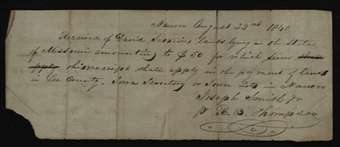 Nauvoo August 22nd 1840
Received of David Sessions lands lying in the State
of Missouri amounting to $50 for which sum
this receipt shall apply in the payment of lands
in Lee County, Iowa Territory or Town Lots in Nauvoo
Joseph Smith Jr
R. B. Thompson